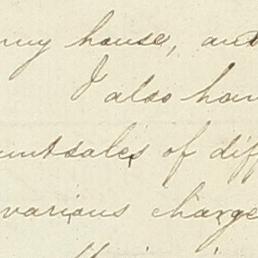 my house, and
I also hav
untsales of diff
various charge